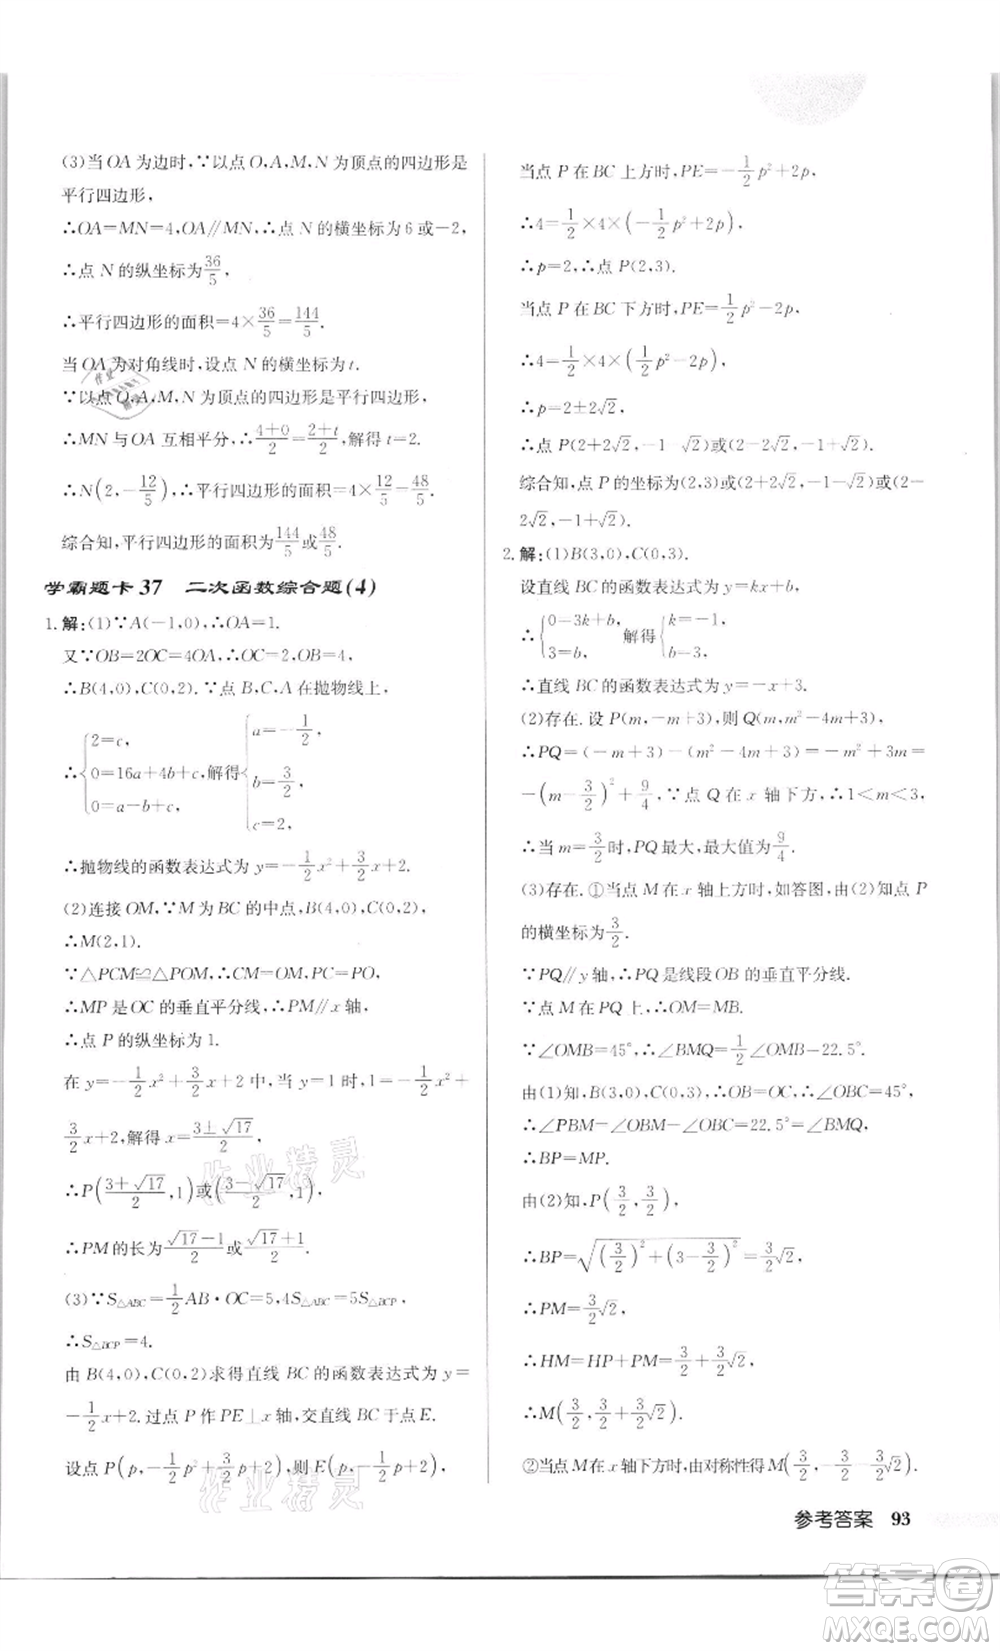 (3)当OA为边时,∵以点O,A,M,N为顶点的四边形是
平行四边形,
∴OA=MN=4,OA∥MN,∴点N的横坐标为6或-2,
∴点N的纵坐标为36/5,
∴平行四边形的面积=4×36/5=144/5.
当OA为对角线时,设点N的横坐标为t.
∵以点O,A,M,N为顶点的四边形是平行四边形,
∴MN与OA互相平分,∴(4+0)/2=(2+t)/2,解得t=2.
∴N(2,-12/5),∴平行四边形的面积=4×12/5=48/5.
综合知,平行四边形的面积为144/5或48/5.
学霸题卡37 二次函数综合题(4)
1.解:(1)∵A(-1,0),∴OA=1.
又∵OB=2OC=4OA,∴OC=2,OB=4,
∴B(4,0),C(0,2).∵点B,C,A在抛物线上,
∴{2=c, 0=16a+4b+c, 0=a-b+c, 解得{a=-1/2, b=3/2, c=2,
∴抛物线的函数表达式为y=-1/2x²+3/2x+2.
(2)连接OM,∵M为BC的中点,B(4,0),C(0,2),
∴M(2,1).
∵△PCM≌△POM,∴CM=OM,PC=PO,
∴MP是OC的垂直平分线,∴PM∥x轴,
∴点P的纵坐标为1.
在y=-1/2x²+3/2x+2中,当y=1时,1=-1/2x²+
3/2x+2,解得x=(3±√17)/2,
∴P((3+√17)/2,1)或((3-√17)/2,1),
∴PM的长为(√17-1)/2或(√17+1)/2.
(3)∵S△ABC=1/2AB·OC=5,4S△ABC=5S△BCP,
∴S△BCP=4.
由B(4,0),C(0,2)求得直线BC的函数表达式为y=
-1/2x+2.过点P作PE⊥x轴,交直线BC于点E.
设点P(p,-1/2p²+3/2p+2),则E(p,-1/2p+2),
当点P在BC上方时,PE=-1/2p²+2p,
∴4=1/2×4×(-1/2p²+2p),
∴p=2,∴点P(2,3).
当点P在BC下方时,PE=1/2p²-2p,
∴4=1/2×4×(1/2p²-2p),
∴p=2±2√2,
∴点P(2+2√2,-1-√2)或(2-2√2,-1+√2).
综合知,点P的坐标为(2,3)或(2+2√2,-1-√2)或(2-
2√2,-1+√2).
2.解:(1)B(3,0),C(0,3).
设直线BC的函数表达式为y=kx+b,
∴{0=3k+b, 3=b, 解得{k=-1, b=3,
∴直线BC的函数表达式为y=-x+3.
(2)存在.设P(m,-m+3),则Q(m,m²-4m+3),
∴PQ=(-m+3)-(m²-4m+3)=-m²+3m=
-(m-3/2)²+9/4.∵点Q在x轴下方,∴1<m<3,
∴当m=3/2时,PQ最大,最大值为9/4.
(3)存在.①当点M在x轴上方时,如答图,由(2)知点P
的横坐标为3/2.
∵PQ∥y轴,∴PQ是线段OB的垂直平分线.
∵点M在PQ上,∴OM=MB.
∵∠OMB=45°,∴∠BMP=1/2∠OMB=22.5°.
由(1)知,B(3,0),C(0,3),∴OB=OC,∴∠OBC=45°,
∴∠PBM=∠OBC-∠BMP=22.5°=∠BMP,
∴BP=MP.
由(2)知,P(3/2,3/2),
∴BP=√((3/2)²+(3-3/2)²)=3/2√2,
∴PM=3/2√2,
∴HM=HP+PM=3/2+3/2√2,
∴M(3/2,3/2+3/2√2).
②当点M在x轴下方时,由对称性得M(3/2,-3/2-3/2√2).
参考答案 93
作业精灵
作业精灵
答案圈
MXQE.COM